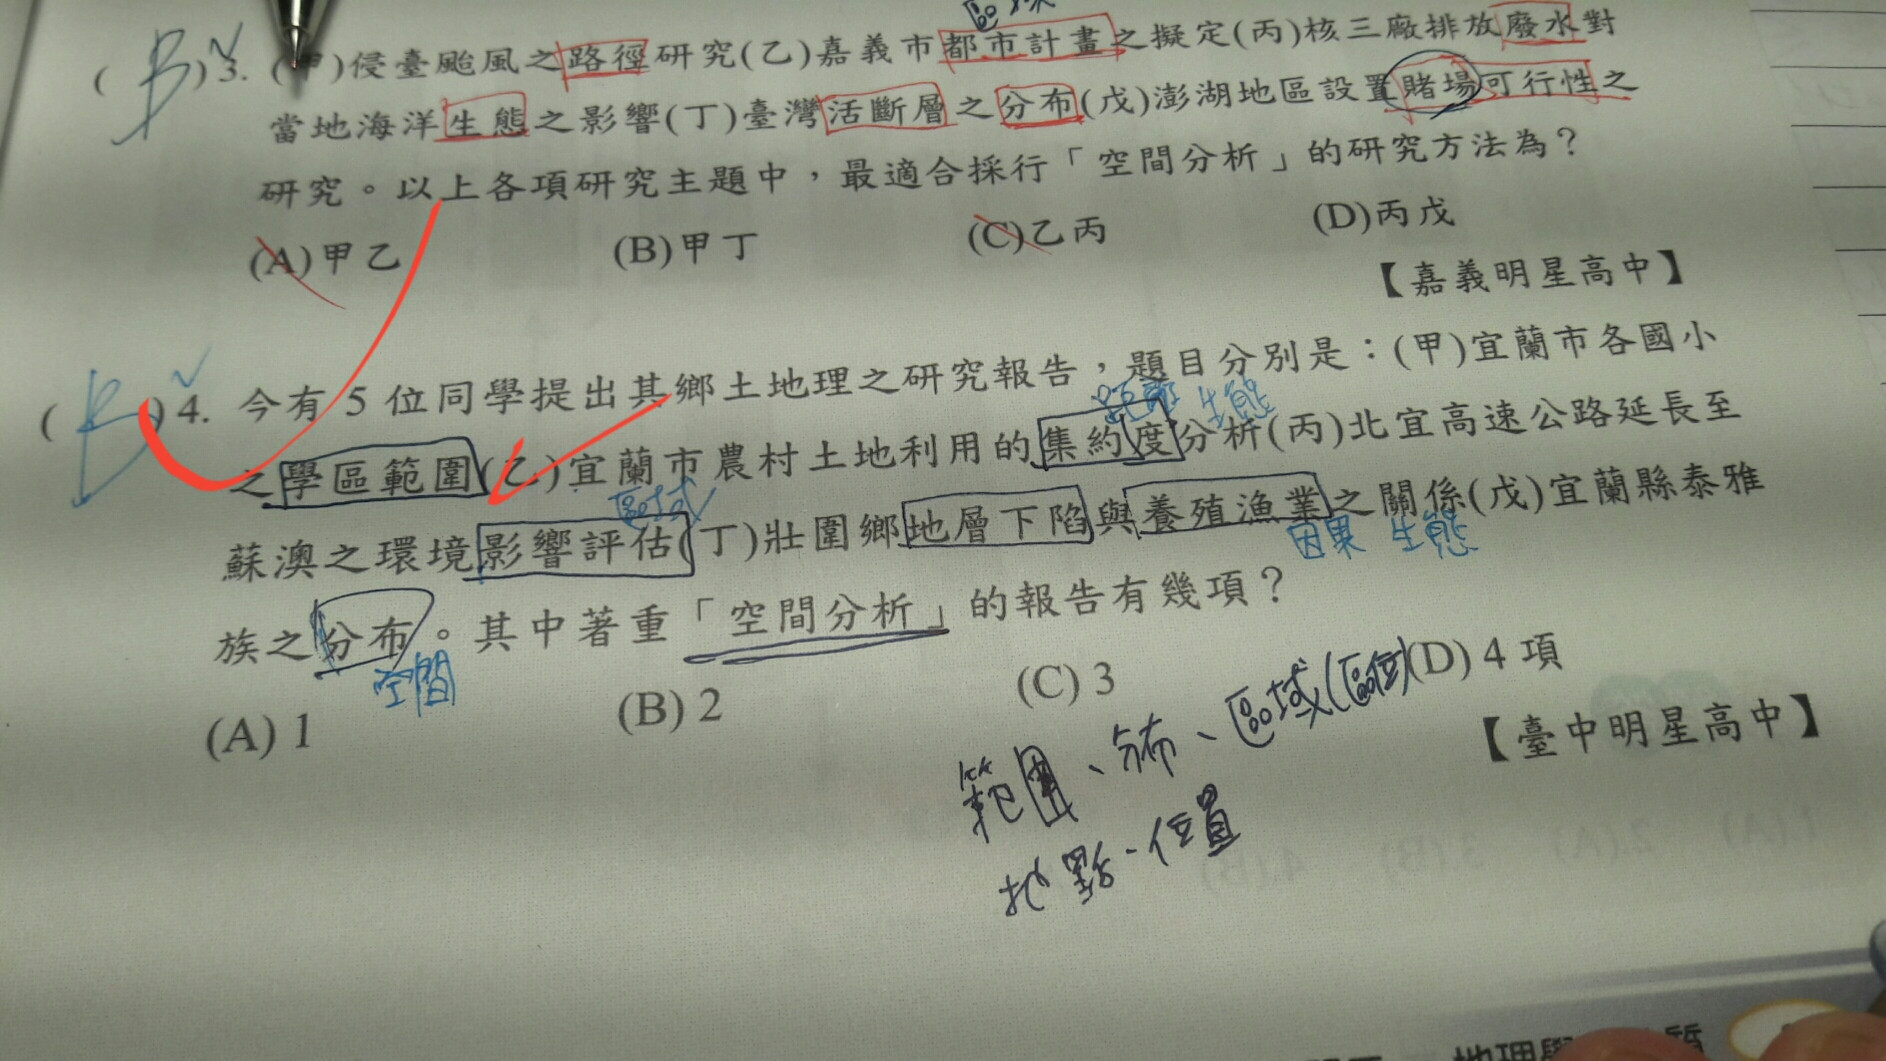 (B)3. (甲)侵臺颱風之路徑研究(乙)嘉義市都市計畫之擬定(丙)核三廠排放廢水對
當地海洋生態之影響(丁)臺灣活斷層之分布(戊)澎湖地區設置賭場可行性之
研究。以上各項研究主題中,最適合採行「空間分析」的研究方法為?
(A)甲乙 (B)甲丁 (C)乙丙 (D)丙戊
【嘉義明星高中】
(B)4. 今有 5 位同學提出其鄉土地理之研究報告,題目分別是:(甲)宜蘭市各國小
距離 生態
之學區範圍(乙)宜蘭市農村土地利用的集約度分析(丙)北宜高速公路延長至
區域
蘇澳之環境影響評估(丁)壯圍鄉地層下陷與養殖漁業之關係(戊)宜蘭縣泰雅
因果 生態
族之分布。其中著重「空間分析」的報告有幾項?
空間
(A) 1 (B) 2 (C) 3 (D) 4 項
【臺中明星高中】
範圍、分布、區域(區位)
地點、位置
1.(A) 2.(A) 3.(B) 4.(B)